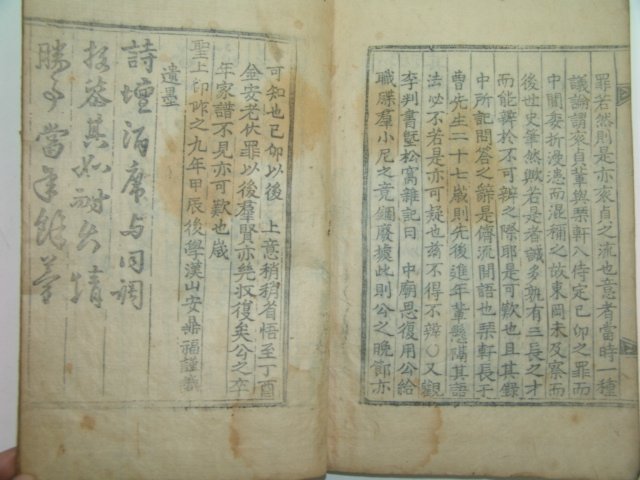 罪若然則是亦袞貞之流也意者當時一種
議論謂袞貞輩與琹軒八侍定己卯之罪而
中間委折湮漶而混稱之故東岡未及察而
後世史筆然歟若是者誠多孰有三長之才
而能辨於不可辨之際耶是可歎也且其錄
中所記問答之辭是儕流間語也琹軒長于
曺先生二十七歲則先後進年輩懸隔其語
法必不若是亦可疑也玆不得不辨〇又觀
李判書墍松窩雜記曰 中廟思復用公給
職牒羣小尼之竟錮廢據此則公之晩節亦
可知也已卯以後 上意稍稍省悟至丁酉
金安老伏罪以後羣賢亦㡬收復矣公之卒
年家譜不見亦可歎也歲
聖上卽阼之九年甲辰後學漢山安鼎福謹識
遺墨
詩壇酒席与同調
其如
當